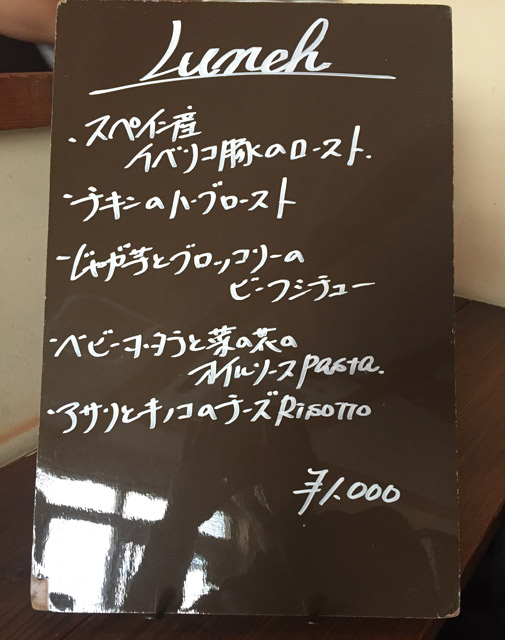 Lunch
・スペイン産
イベリコ豚のロースト.
・チキンのハーブロースト
・じゃが芋とブロッコリーの
ビーフシチュー
・ベビーホタテと菜の花の
オイルソースpasta.
・アサリとキノコのチーズRisotto
¥1.000